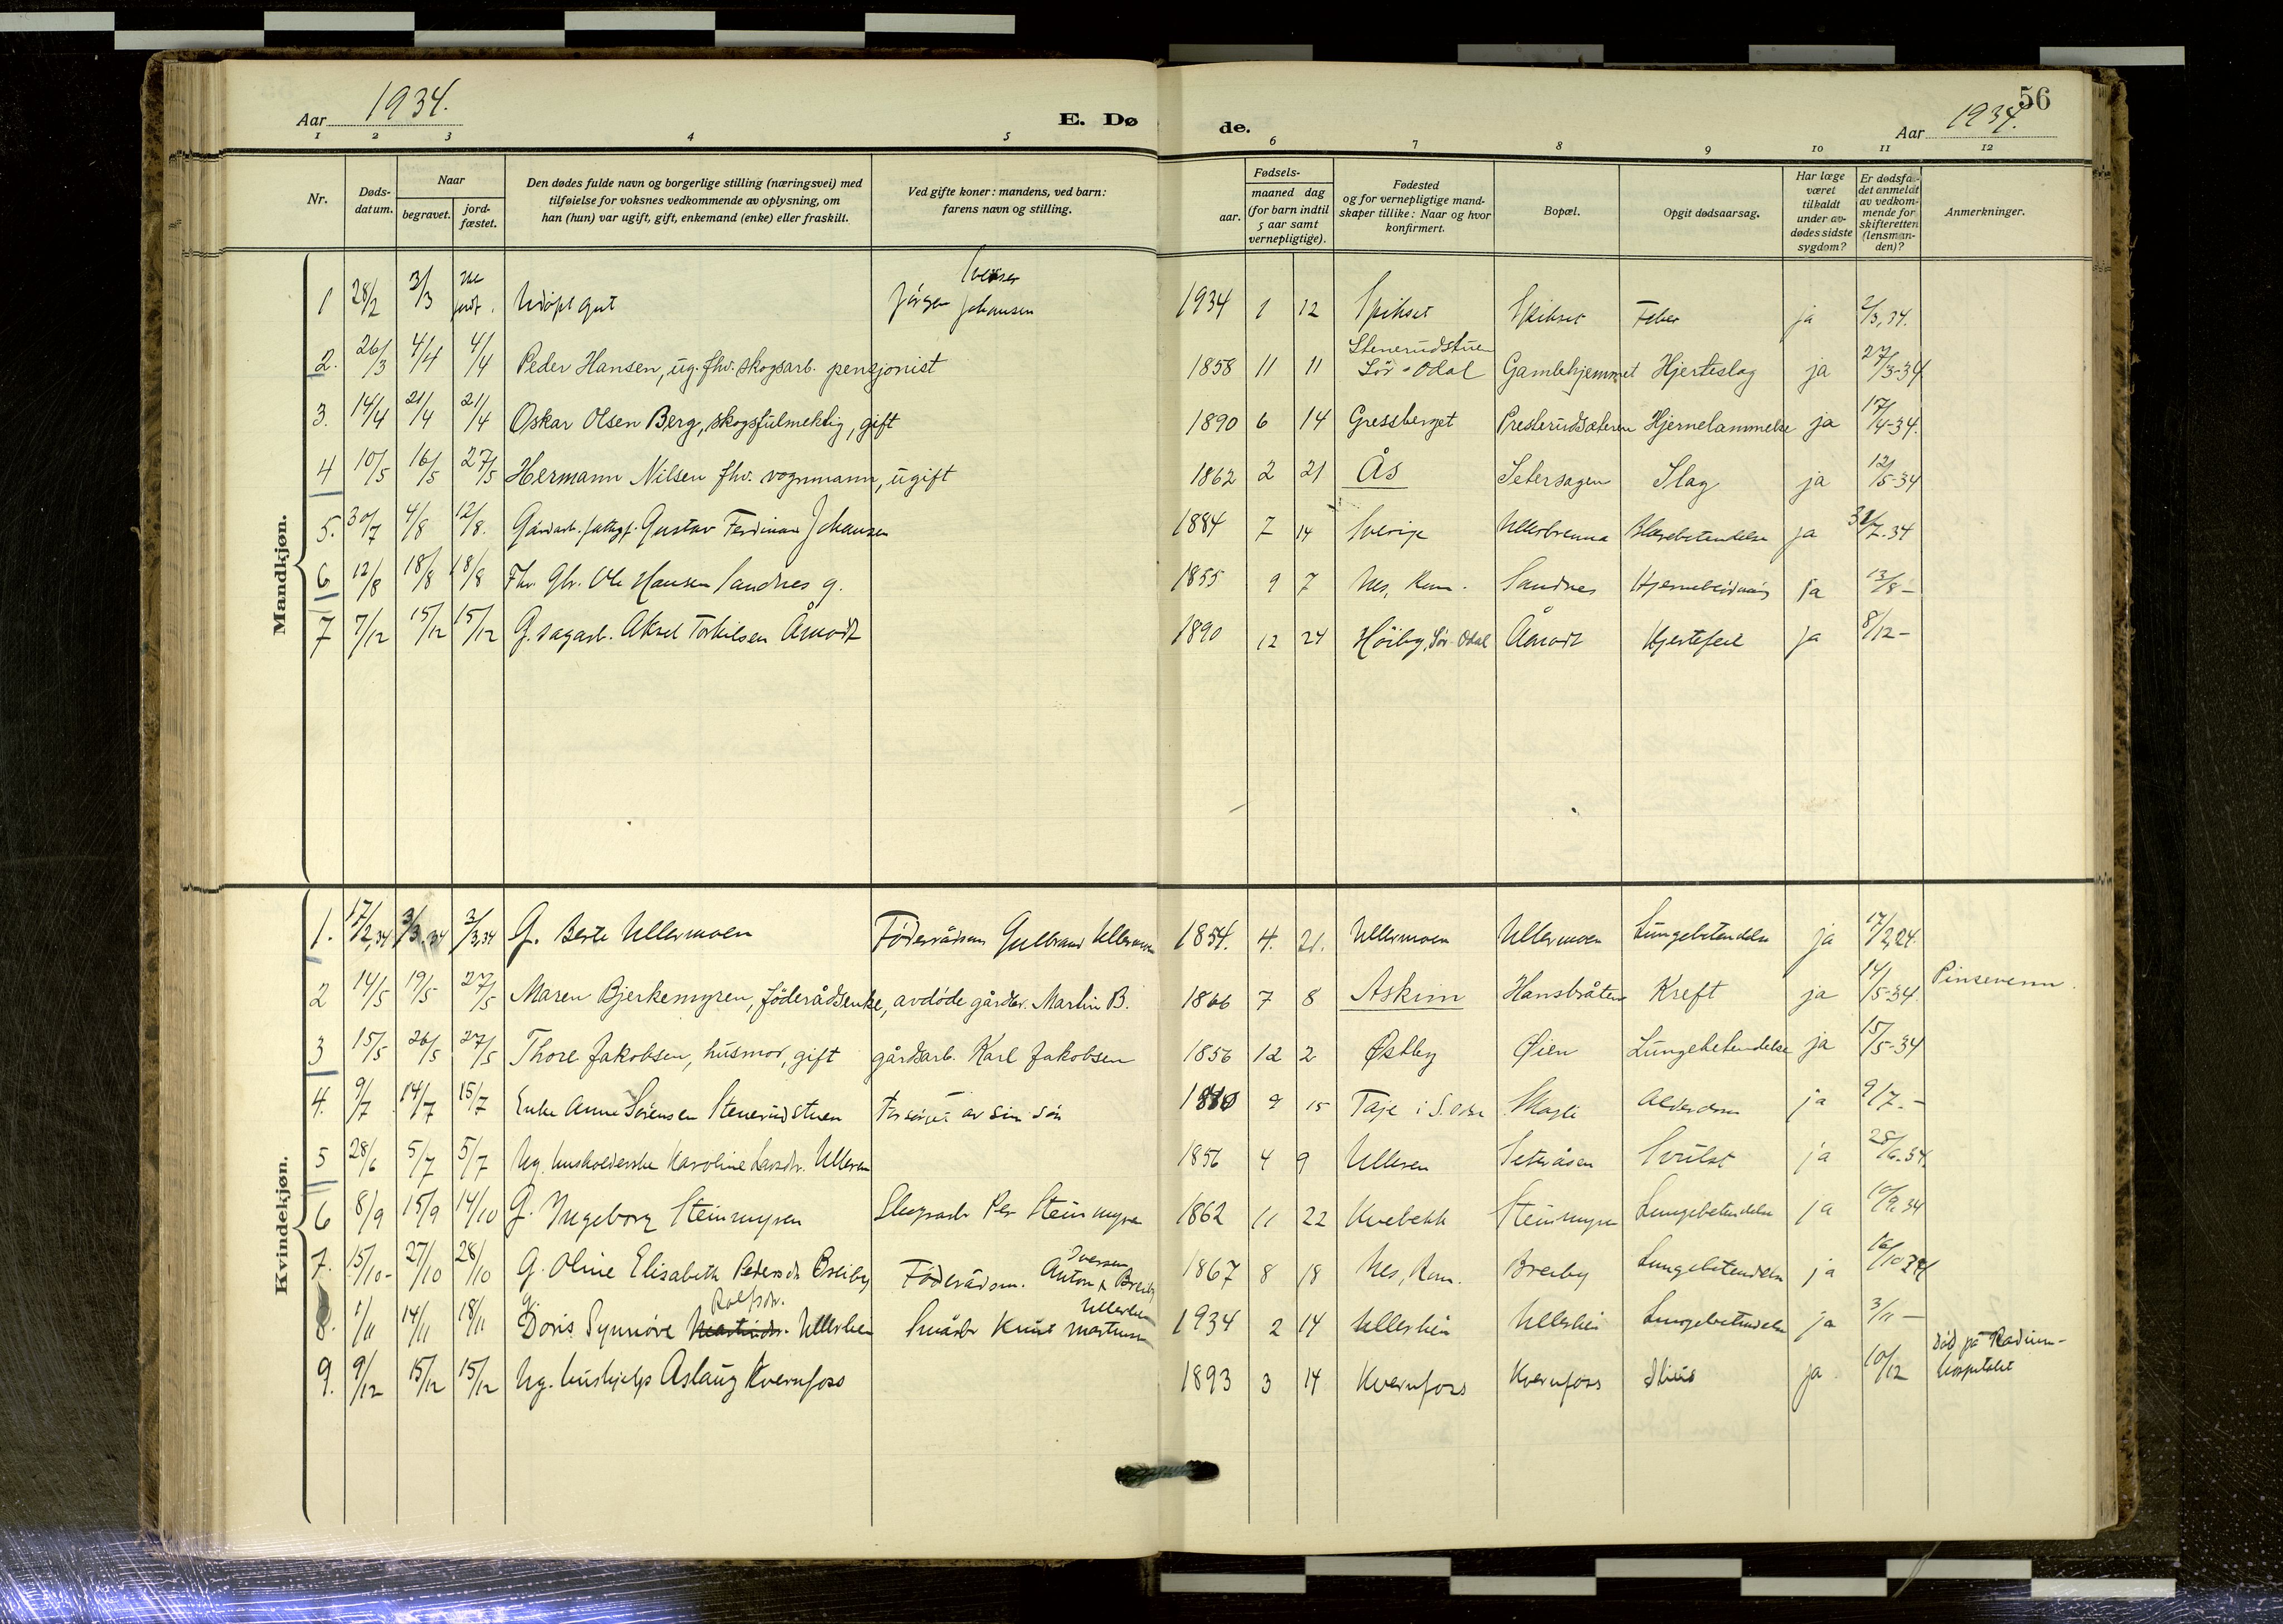 Aar 1934.
E. Dø
de.
Aar 1934.
56
1 2 3 4 5 6 7 8 9 10 11 12
Nr.
Døds-
datum.
Naar
begravet.
jord-
fæstet.
Den dødes fulde navn og borgerlige stilling (næringsvei) med
tilføielse for voksnes vedkommende av oplysning, om
han (hun) var ugift, gift, enkemand (enke) eller fraskilt.
Ved gifte koner: mandens, ved barn:
farens navn og stilling.
Fødsels-
aar.
maaned dag
(for barn indtil
5 aar samt
vernepligtige).
Fødested
og for vernepligtige mand-
skaper tillike: Naar og hvor
konfirmert.
Bopæl.
Opgit dødsaarsag.
Har læge
været
tilkaldt
under av-
dødes sidste
sygdom?
Er dødsfal-
det anmeldt
av vedkom-
mende for
skifteretten
(lensman-
den)?
Anmerkninger.
Mandkjøn.
1 28/2 3/3 Udøpt gut Jørgen Johansen 1934 1 12 Spikset Spikset Feber ja 2/3,34.
2. 26/3 4/4 4/4 Peder Hansen, ug. fhv. skogsarb. pensjonist 1858 11 11 Stenerudstuen Sør-Odal Gamlehjemmet Hjerteslag ja 27/3-34
3. 14/4 21/4 21/4 Oskar Olsen Berg, skogsfulmektig, gift 1890 6 14 Gressberget Presterudsæteren Hjernelammelse ja 17/4-34.
4 10/5 16/5 27/5 Hermann Nilsen fhv. vognmann, ugift 1862 2 21 Ås Setersagen Slag ja 12/5-34
5. 30/7 4/8 12/8. Gårdarb. Gustav Ferdinan Johansen 1884 7 14 Sverige Ullerbrenna Blærebetendelse ja 31/7-34
6 12/8 18/8 18/8 Fhv. Gbr. Ole Hansen Sandnes g. 1855 9 7 Nes, Rom. Sandnes Hjerneblødning ja 13/8-
7 7/12 15/12 15/12 G. sagarb. Aksel Torkilsen Åmodt 1890 12 24 Høiby, Sør-Odal Åmodt Hjertefeil ja 8/12-
Kvindekjøn.
1. 17/2,34 3/3,34 3/3,34 G. Berte Ullermoen Føderådsm. Gulbrand Ullermoen 1854. 4. 21. Ullermoen Ullermoen Lungebetendelse ja 17/2,24.
2 14/5 19/5 27/5 Maren Bjerkemyren, føderådsenke, avdøde gårdbr. Martin B. 1866 7 8 Askim Hansbråten Kreft ja 14/5-34. Pinsevenn.
3 15/5 26/5 27/5 Thore Jakobsen, husmor, gift gårdsarb. Karl Jakobsen 1856 12 2 Østby Øien Lungebetendelse ja 15/5-34
4. 9/7 14/7 15/7 Enke Anne Sørensen Stenerudstuen Forsørget av sin søn 9 15 Taje i S. Odal Alderdom ja 9/7.-
5 28/6 5/7 5/7 Ug. husholderske Karoline Larsdr. Ulleren 1856 4 9 Ulleren Seteråsen Svulst ja 28/6.34.
6 8/9 15/9 14/10 G. Ingeborg Steinmyren Skogsarb. Per Steinmyren 1862 11 22 Kvebekk Steinmyren Lungebetendelse ja 10/9.34
7. 15/10- 27/10 28/10 G. Oline Elisabeth Pedersdr. Breiby Føderådsm. Anton Iversen Breiby 1867 8 18 Nes, Rom. Breiby Lungebetendelse ja 16/10 34
8. 1/11 14/11 18/11 Doris Synnöve Rolfsdr. Martinsdr. Ullerlien Småbr. Knut Martinsen Ullerlien 1934 2 14 Ullerlien Ullerlien Lungebetendelse ja 3/11-
9. 9/12 15/12 15/12 Ug. hushjelp Aslaug Kvernfoss 1893 3 14 Kvernfoss Kvernfoss ja 10/12 Død på Radium-
hospitalet